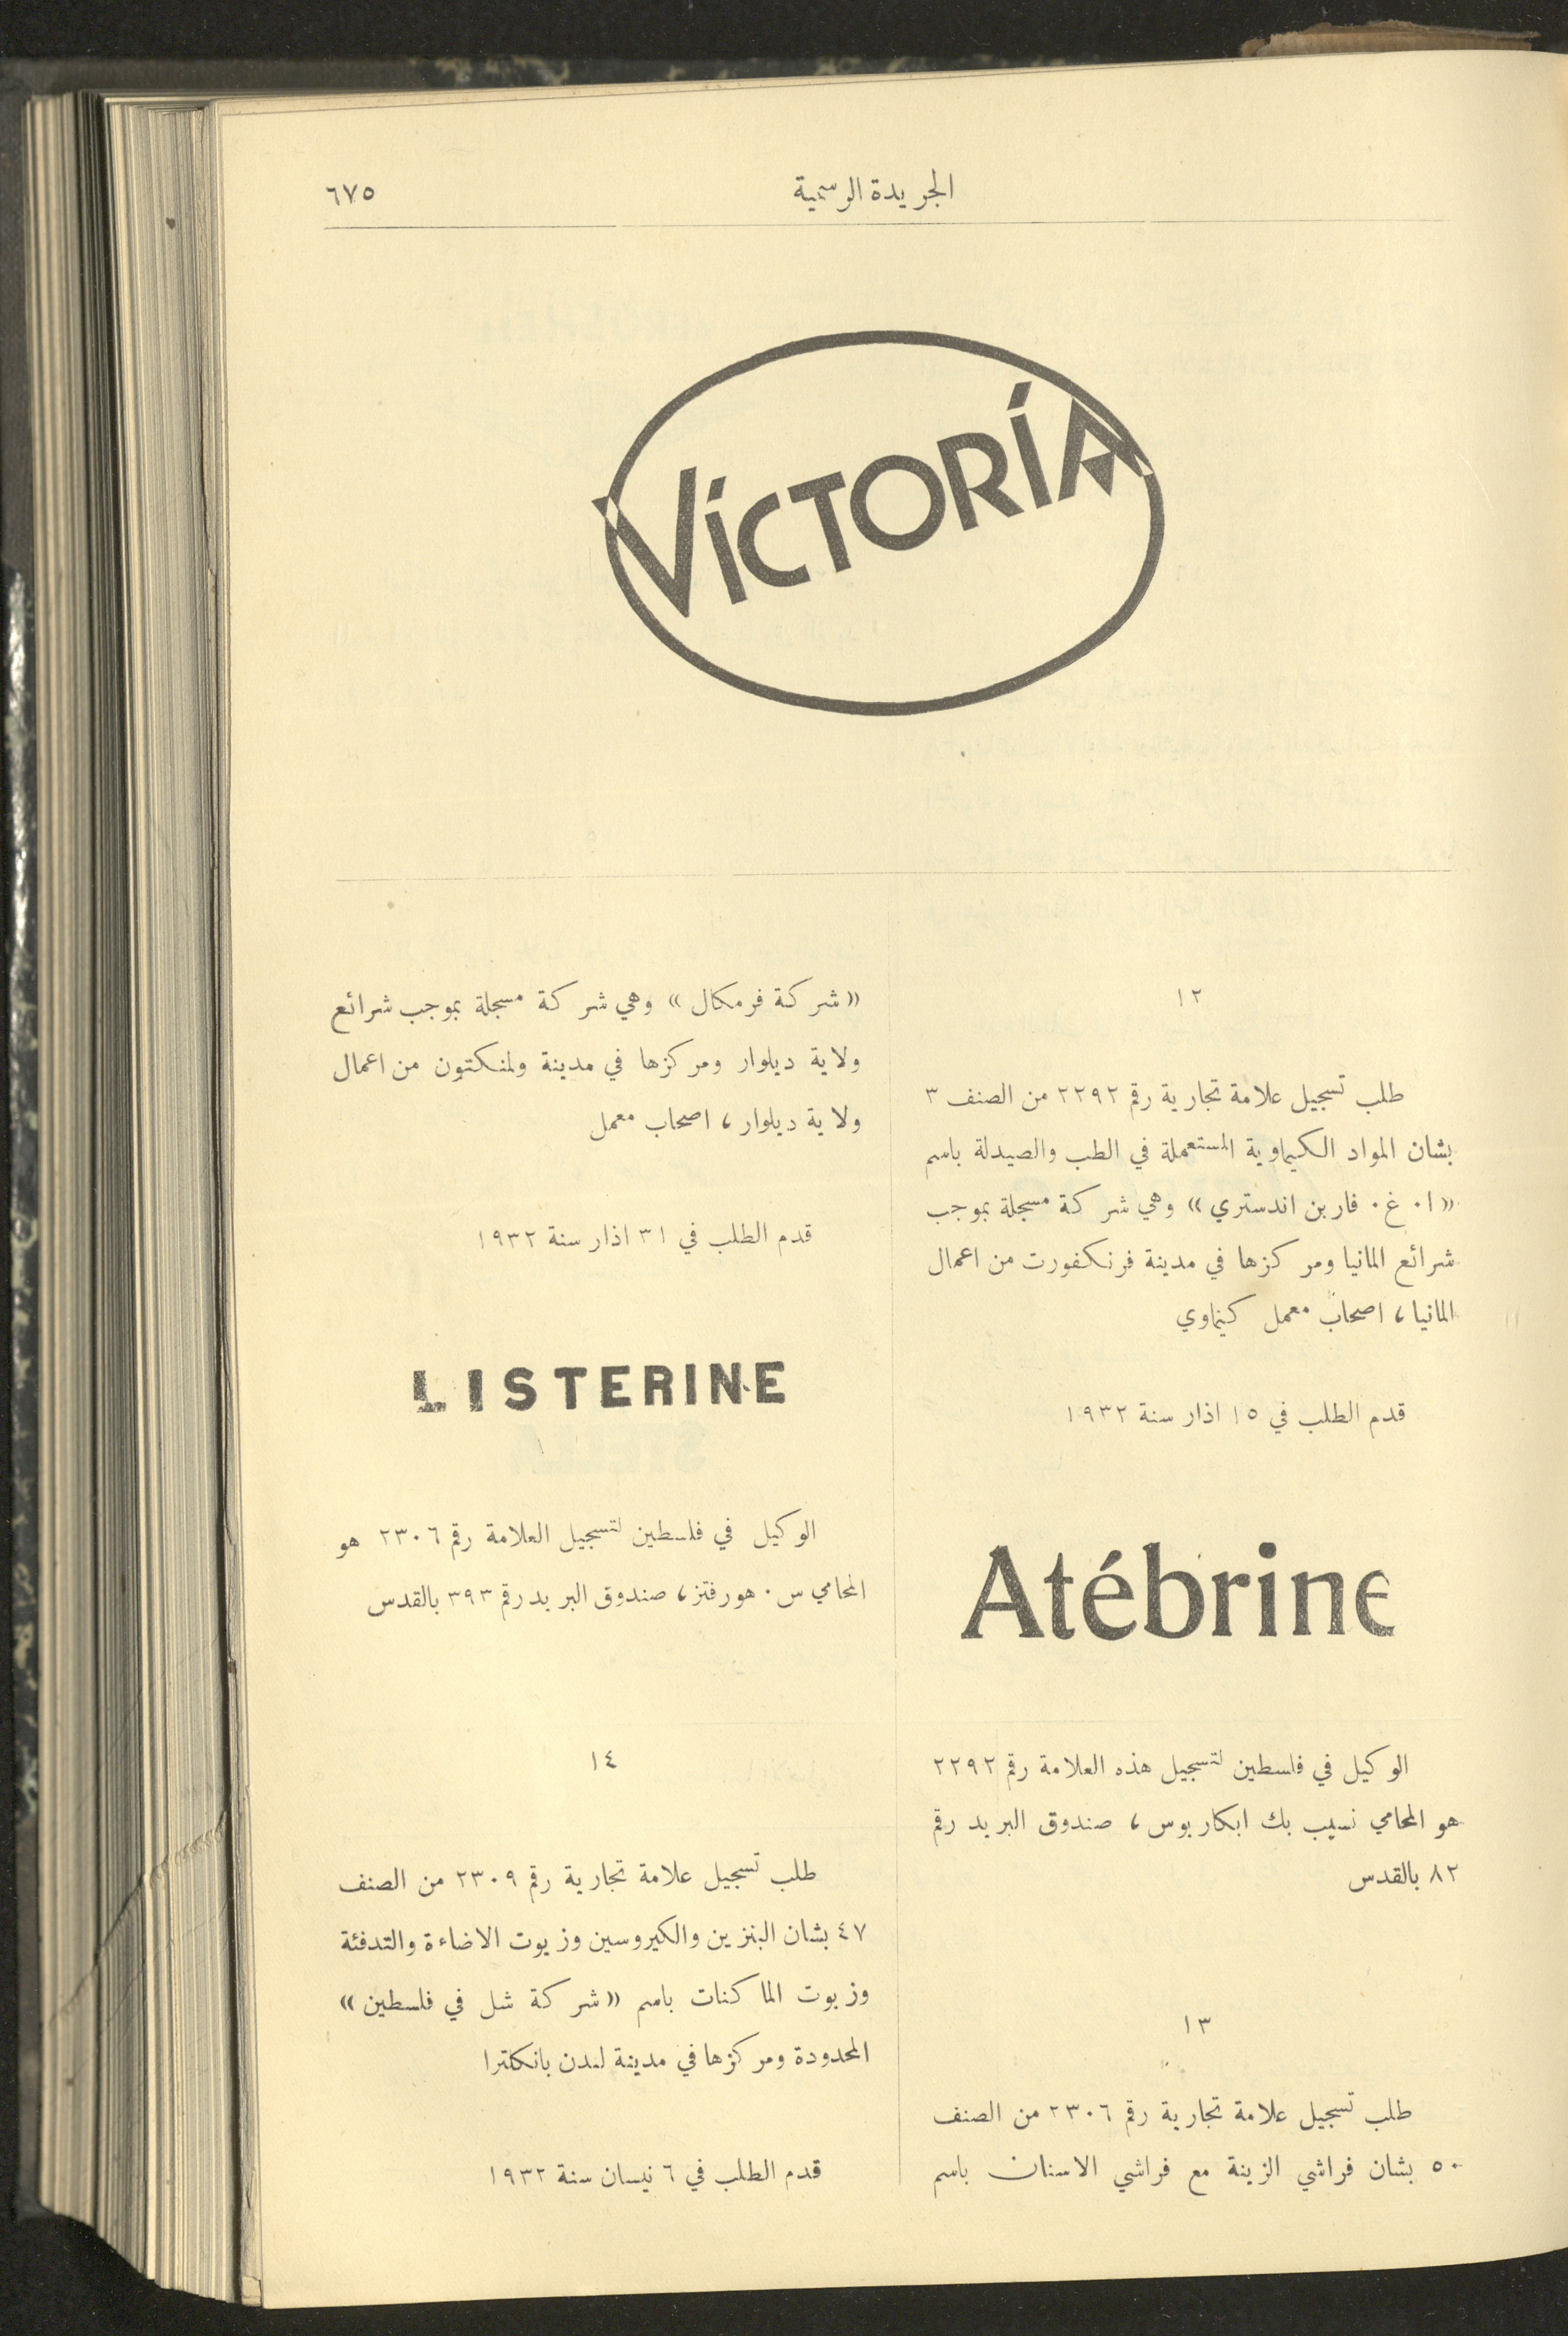 الجريدة الرسمية
٦٧٥
VICTORIA
١٢
طلب تسجيل علامة تجارية رقم ٢٢٩٢ من الصنف ٣
بشان المواد الكيماوية المستعملة في الطب والصيدلة باسم
«ا. غ. فاربن اندستري» وهي شركة مسجلة بموجب
شرائع المانيا ومركزها في مدينة فرنكفورت من اعمال
المانيا، اصحاب معمل كيماوي
قدم الطلب في ١٥ اذار سنة ١٩٣٢
Atébrine
الوكيل في فلسطين لتسجيل هذه العلامة رقم ٢٢٩٢
هو المحامي نسيب بك ابكاريوس، صندوق البريد رقم
٨٢ بالقدس
١٣
طلب تسجيل علامة تجارية رقم ٢٣٠٦ من الصنف
٥٠ بشان فراشي الزينة مع فراشي الاسنان باسم
«شركة فرمكال» وهي شركة مسجلة بموجب شرائع
ولاية ديلوار ومركزها في مدينة ولمنكتون من اعمال
ولاية ديلوار، اصحاب معمل
قدم الطلب في ٣١ اذار سنة ١٩٣٢
LISTERINE
الوكيل في فلسطين لتسجيل العلامة رقم ٢٣٠٦ هو
المحامي س. هورفتز، صندوق البريد رقم ٣٩٣ بالقدس
١٤
طلب تسجيل علامة تجارية رقم ٢٣٠٩ من الصنف
٤٧ بشان البنزين والكيروسين وزيوت الاضاءة والتدفئة
وزيوت الماكنات باسم «شركة شل في فلسطين»
المحدودة ومركزها في مدينة لندن بانكلترا
قدم الطلب في ٦ نيسان سنة ١٩٣٢